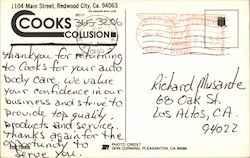 1104 Main Street, Redwood City, Ca. 94063
COOKS
365-3206
COLLISION
thank you for returning
to Cooks for your auto
body care. We value
your confidence in our
business and strive to
provide top quality
products and service.
thanks again for the
opportunity to
serve you.
Richard Musante
60 Oak St.
Los Altos, CA.
94022
PHOTO CREDIT
DON CORNING, PLEASANTON, CA 94566